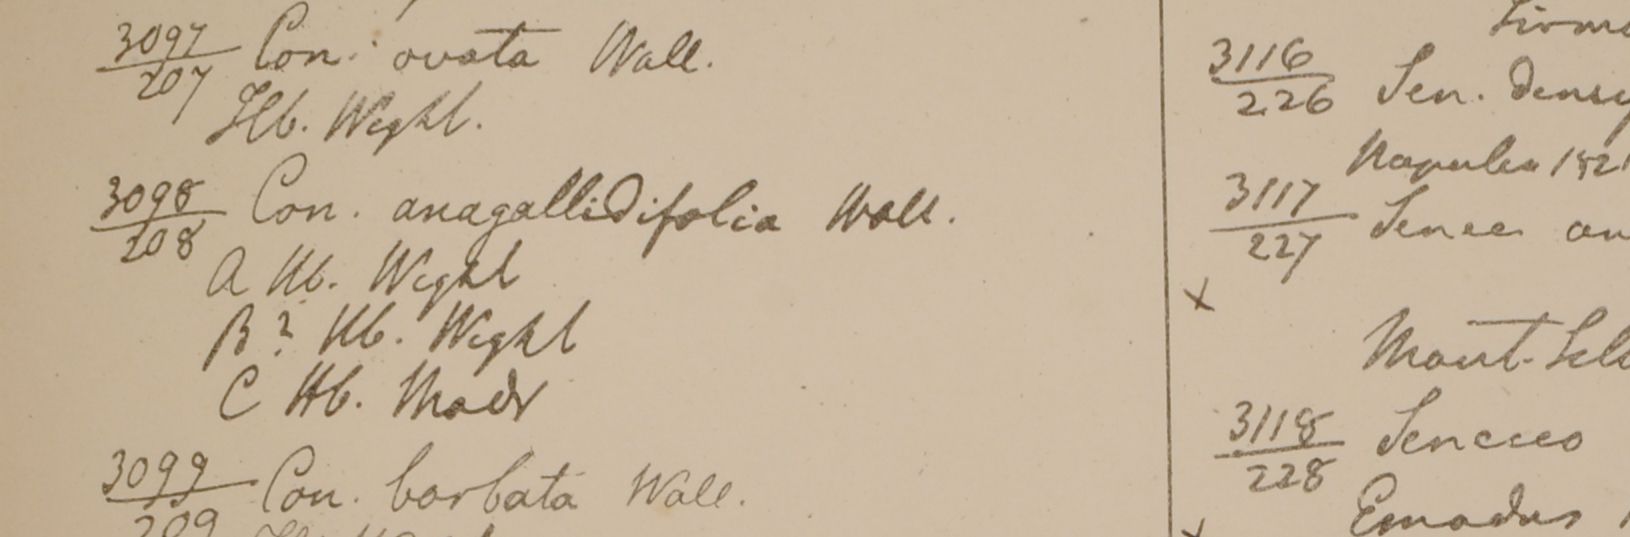 3097
207 Con. ovata Wall.
Hb. Wight.
3098
208 Con. anagallidifolia Wall.
A Hb. Wight
B? Hb. Wight
C Hb. Madr
3099
209 Con. barbata Wall.
3116
226 Sen. dens
Napulia 1821
3117
227 Senec
x
Mont.
3118
228 Senecio
Emodus
x